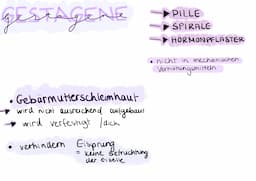 GESTAGENE
gestagene
→ PILLE
→ SPIRALE
→ HORMONPFLASTER
• nicht in mechanischen
Verhütungsmitteln
• Gebärmutterschleimhaut
→ wird nicht ausreichend aufgebaut
→ wird verfestigt /dich
• verhindern Eisprung
= keine Befruchtung
der Eizelle